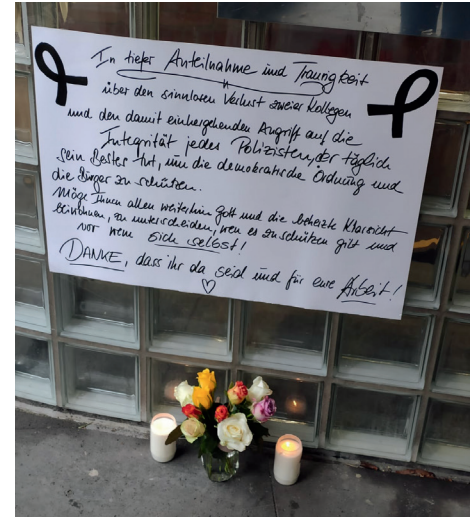 In tiefer Anteilnahme und Traurigkeit
über den sinnlosen Verlust zweier Kollegen
und den damit einhergehenden Angriff auf die
Integrität jedes Polizisten, der täglich
sein Bestes tut, um die demokratische Ordnung und
die Bürger zu schützen.
Möge Ihnen allen weiterhin Gott und die beherzte Klarsicht
beiwohnen, zu unterscheiden, wen es zu schützen gilt und
vor wem sich selbst!
DANKE, dass ihr da seid und für eure Arbeit!